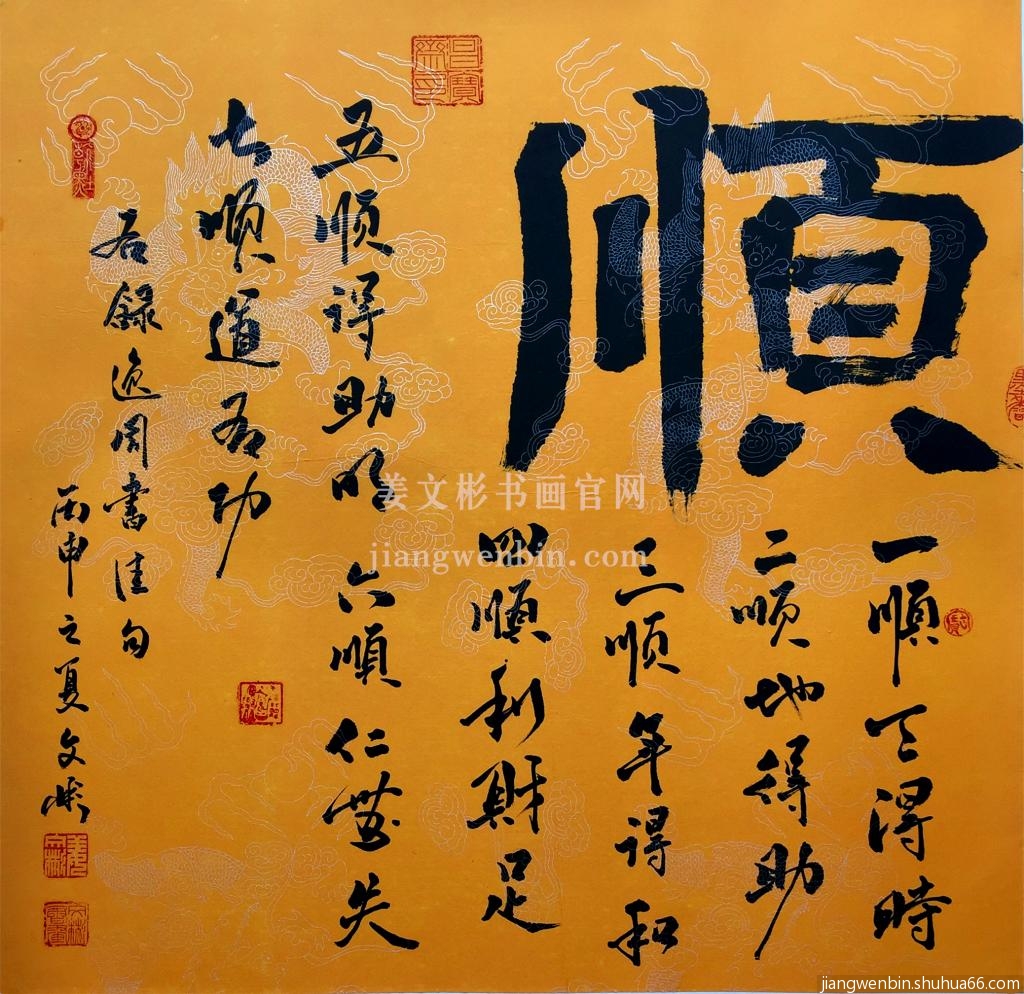 順
一順天得時
二順地得助
三順年得和
四順利財足
五順得助明 六順仁無失
七順道有功
右錄逸周書佳句
丙申之夏文彬
姜文彬书画官网
jiangwenbin.com
jiangwenbin.shuhua66.com